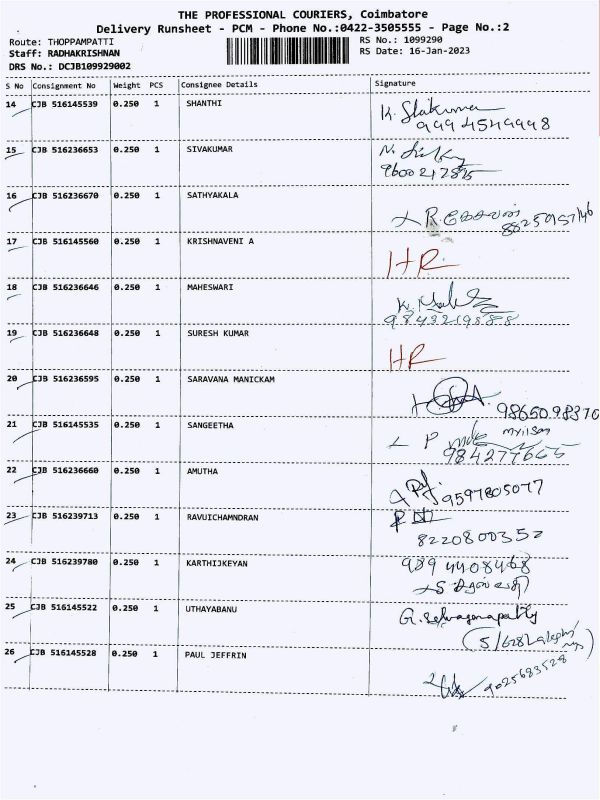 THE PROFESSIONAL COURIERS, Coimbatore
Delivery Runsheet - PCM - Phone No.:0422-3505555 - Page No.:2
Route: THOPPAMPATTI RS No.: 1099290
Staff: RADHAKRISHNAN RS Date: 16-Jan-2023
DRS No.: DCJB109929002
S No Consignment No Weight PCS Consignee Details Signature
14 CJB 516145539 0.250 1 SHANTHI
9994549998
15 CJB 516236653 0.250 1 SIVAKUMAR
9600217825
16 CJB 516236670 0.250 1 SATHYAKALA
17 CJB 516145560 0.250 1 KRISHNAVENI A HR
18 CJB 516236646 0.250 1 MAHESWARI
19 CJB 516236648 0.250 1 SURESH KUMAR HR
20 CJB 516236595 0.250 1 SARAVANA MANICKAM
9865098370
21 CJB 516145535 0.250 1 SANGEETHA
984277665
22 CJB 516236660 0.250 1 AMUTHA
9597805077
23 CJB 516239713 0.250 1 RAVUICHAMNDRAN
8220800352
24 CJB 516239780 0.250 1 KARTHIJKEYAN 9894408468
25 CJB 516145522 0.250 1 UTHAYABANU
26 CJB 516145528 0.250 1 PAUL JEFFRIN
9025683528